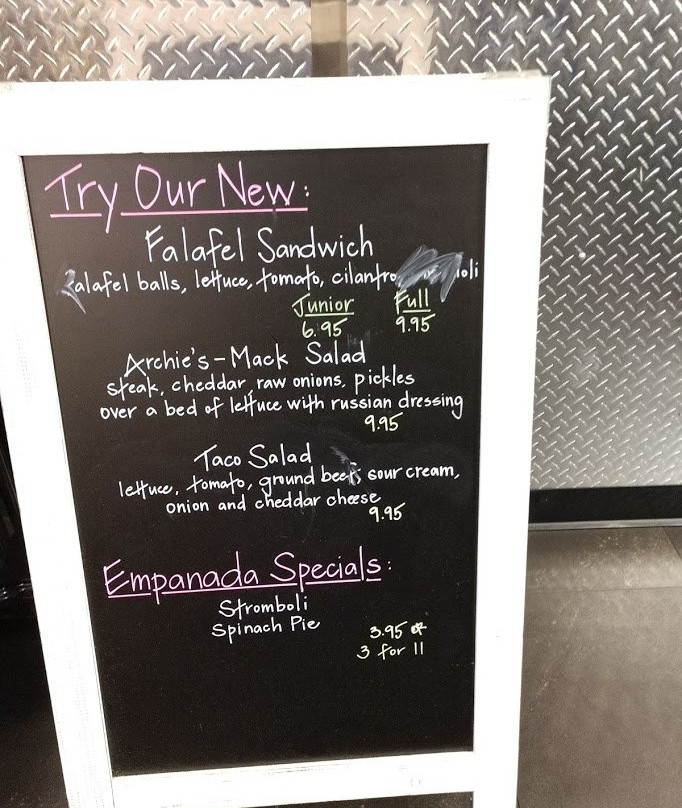 Try Our New:
Falafel Sandwich
falafel balls, lettuce, tomato, cilantro
Junior Full
6.95 9.95
Archie's - Mack Salad
steak, cheddar, raw onions, pickles
over a bed of lettuce with russian dressing
9.95
Taco Salad
lettuce, tomato, ground beef, sour cream,
onion and cheddar cheese
9.95
Empanada Specials:
Stromboli
Spinach Pie
3.95 or
3 for 11